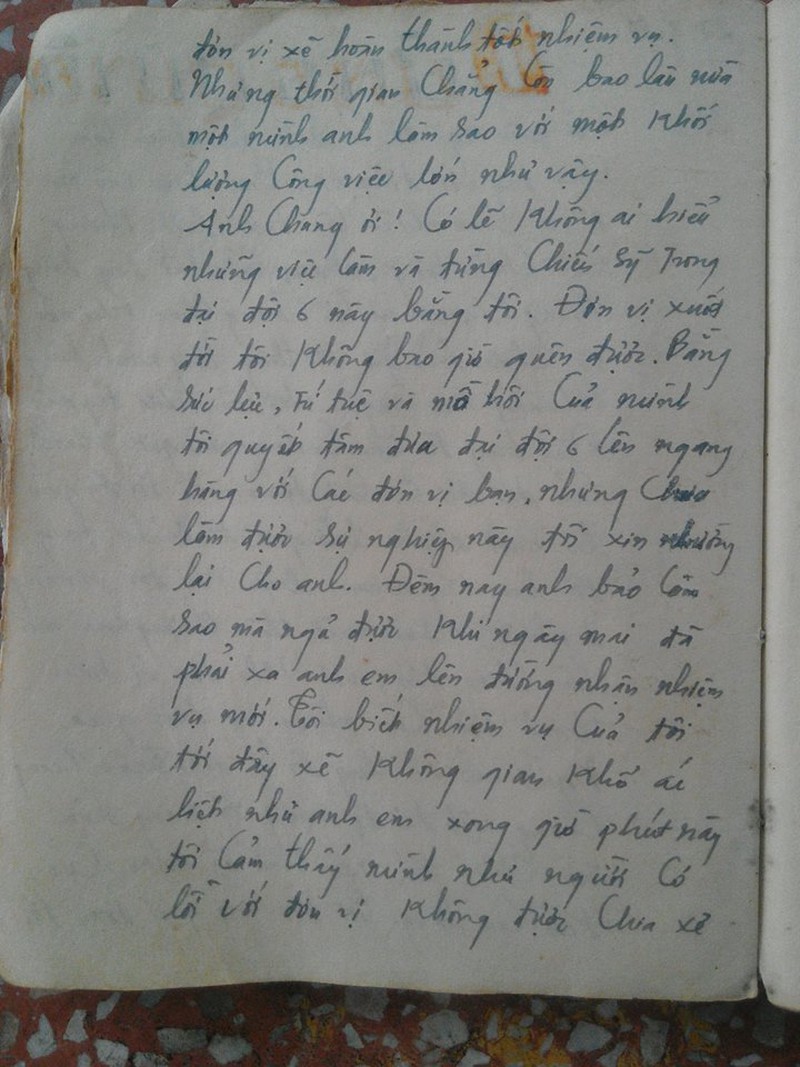 đơn vị xẽ hoàn thành tốt nhiệm vụ.
Nhưng thời gian Chẳng Còn bao lâu nữa
một mình anh làm sao với một khối
lượng Công việc lớn như vậy.
Anh Chung ơi! Có lẽ không ai hiểu
những việc làm và từng Chiến sỹ Trong
đại đội 6 này bằng tôi. Đơn vị xuốt
đời tôi không bao giờ quên được. Bằng
sức lực, Trí tuệ và mồ hôi Của mình
tôi quyết tâm đưa đại đội 6 lên ngang
hàng với Các đơn vị bạn, nhưng Chưa
làm được sự nghiệp này tôi xin nhường
lại Cho anh. Đêm nay anh bảo làm
sao mà ngủ được khi ngày mai đã
phải xa anh em lên đường nhận nhiệm
vụ mới. Tôi biết nhiệm vụ Của tôi
tới đây xẽ không gian khổ ác
liệt như anh em xong giờ phút này
tôi Cảm thấy mình như người Có
lỗi với đơn vị không được Chia xẻ